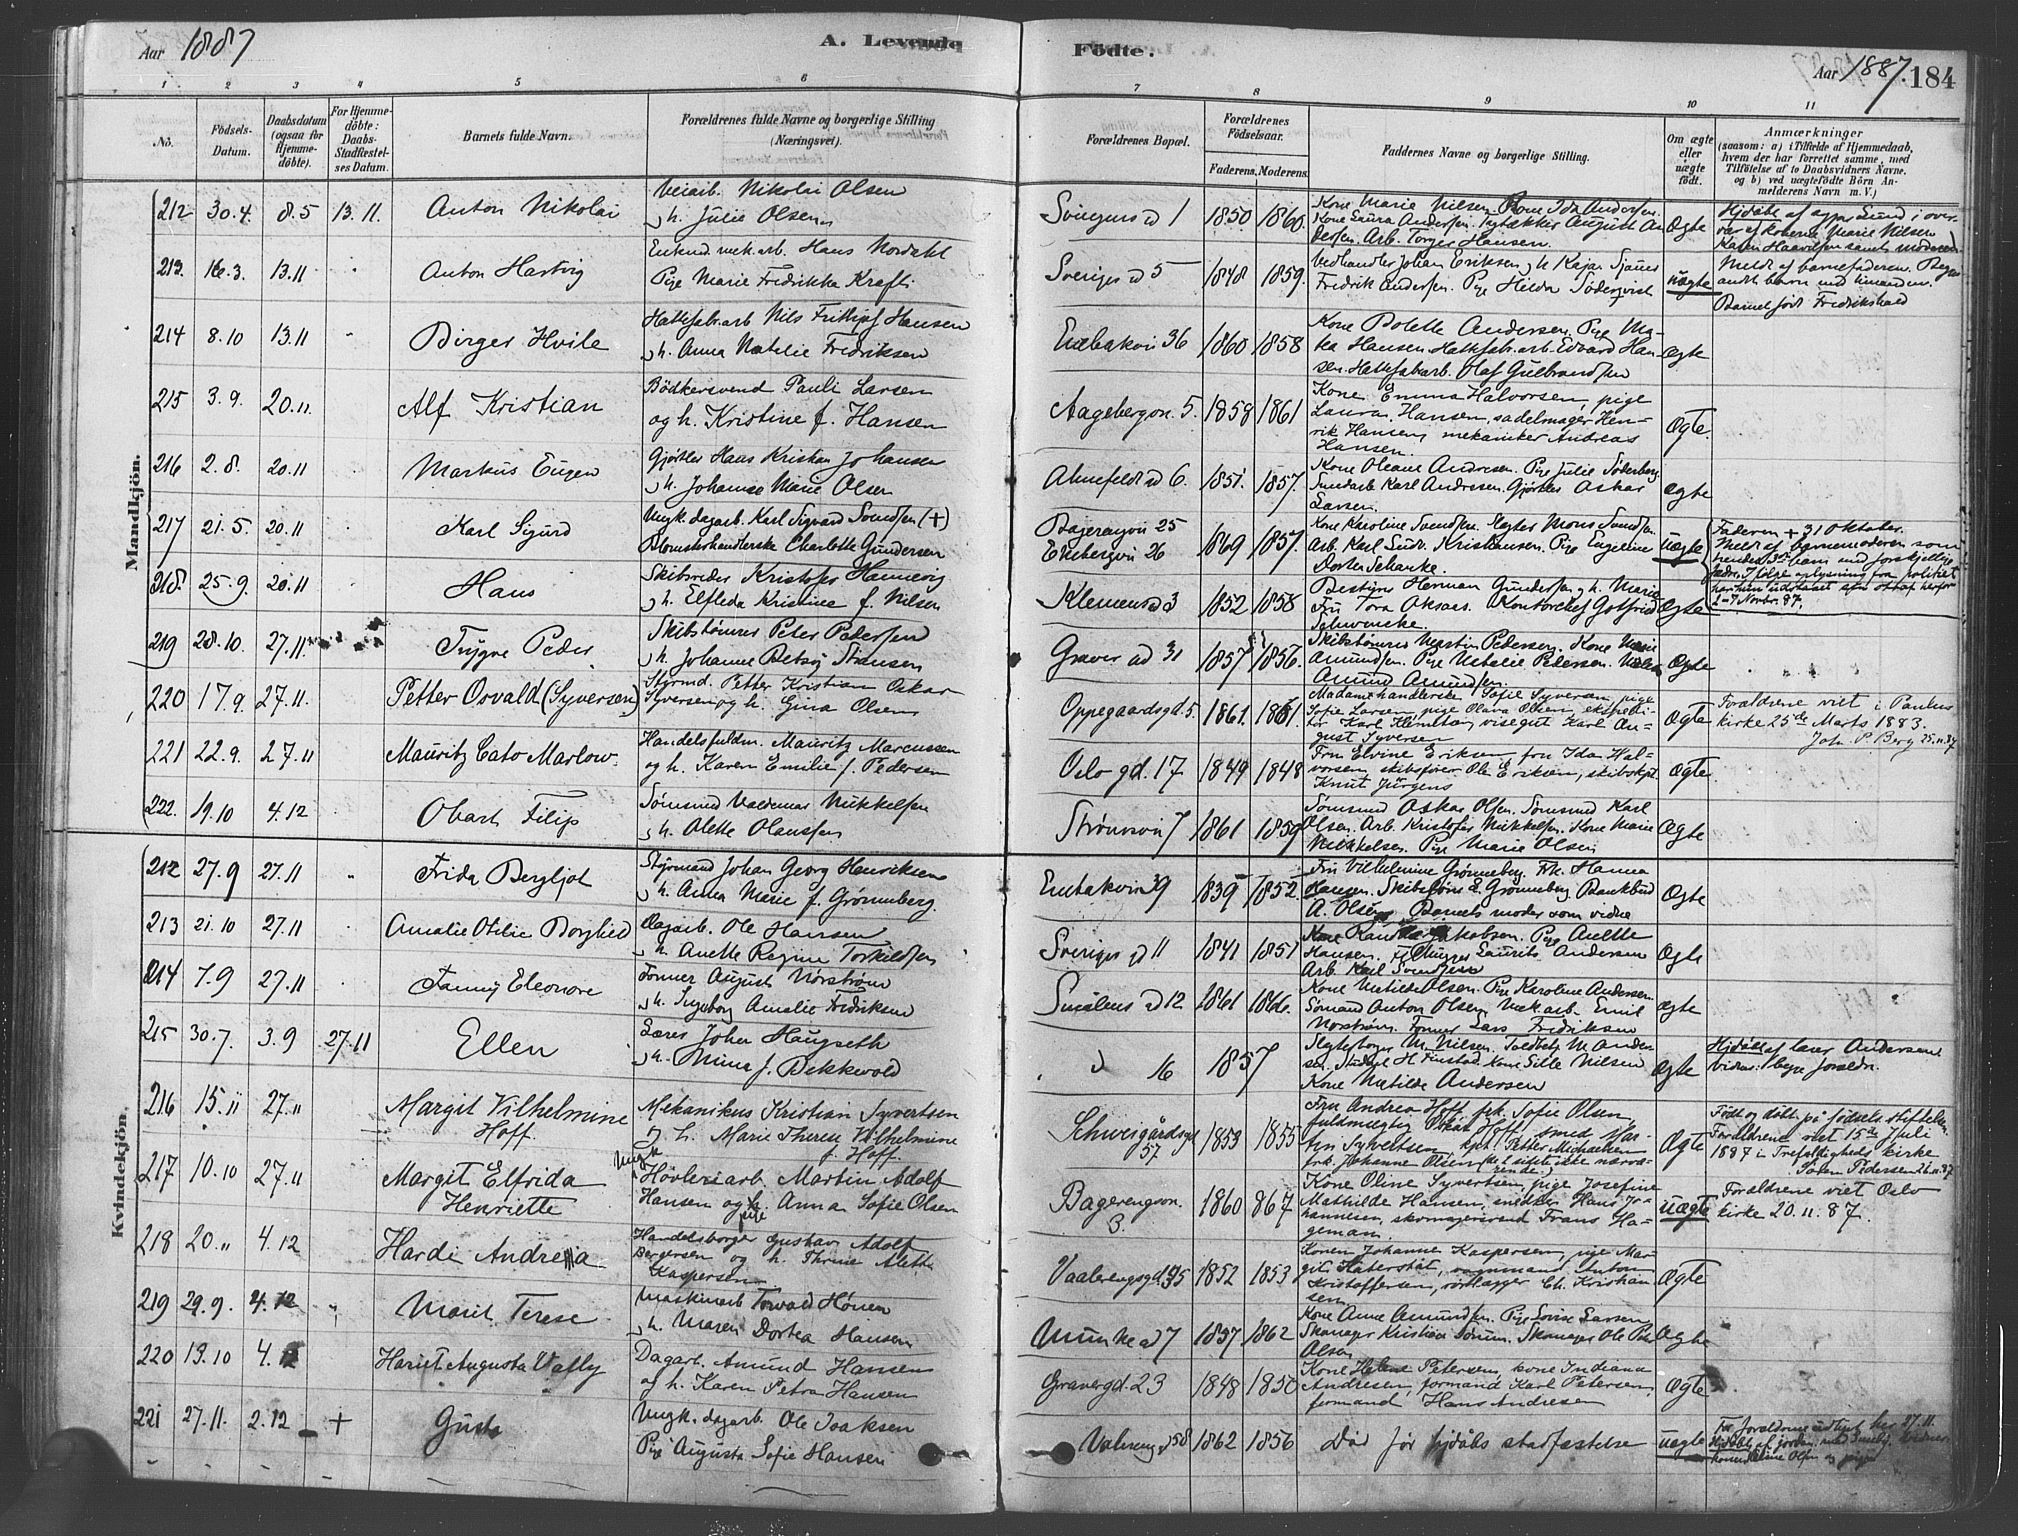 Aar 1887
A. Levende
Födte.
Aar 1887. 184
1 2 3 4 5 6 7 8 9 10 11
No.
Födsels-
Datum.
Daabsdatum
(ogsaa for
Hjemme-
döbte).
For Hjemme-
döbte:
Daabs-
Stadfæstel-
ses Datum.
Barnets fulde Navn.
Forældrenes fulde Navne og borgerlige Stilling
(Næringsvei).
Forældrenes Bopæl.
Forældrenes
Födselsaar.
Faderens. Moderens.
Faddernes Navne og borgerlige Stilling.
Om ægte
eller
uægte
födt.
Anmærkninger
(saasom: a) i Tilfælde af Hjemmedaab,
hvem der har forrettet samme, med
Tilföielse af to Daabsvidners Navne,
og b) ved uægtefödte Börn An-
melderens Navn m. V.)
Mandkjön.
212 30.4. 8.5 13.11. Anton Nikolai
Veiarb. Nikolai Olsen
h. Julie Olsen
1 1850 1860.
Kone Marie Nilsen. Kone Ida Andersen.
Kone Laura Andersen. August An
dersen. Arb. Torger Hansen.
Ægte
Hjdøbt af Lund i over
vær af konerne Marie Nilsen
Karen samt moderen
213. 16.3. 13.11 " Anton Hartvig
Enkmd. mek. arb. Hans Nordahl
Pige Marie Fredrikke Kraft.
Sveriges gd 5 1848 1859.
Vedhandler Johan Eriksen, h. Kaja.
Fredrik Andersen. Pige Hilda Söderqvist
uægte
Meldt af barnefaderen. Begges
andet barn med hinanden.
Barnet født Fredrikshald
214 8.10 13.11 " Birger Hvile
Hattefabr.arb Nils Frithjof Hansen
h. Anna Natelie Fredriksen
Enebakvei 36 1860 1858
Kone Bolette Andersen. Pige Ma-
tea Hansen. Hattefabr.arb. Edvard Han-
sen. Hattefabr.arb. Olaf Gulbrandsen
ægte
215 3.9. 20.11. Alf Kristian
Bödkersvend Pauli Larsen
og h. Kristine f. Hansen
Aagebergvn. 5. 1858 1861
Kone Emma Halvorsen, pige
Laura Hansen, sadelmager Hen-
rik Hansen, mekaniker Andreas
Hansen.
Ægte.
216 2.8. 20.11 Markus Eugen
Gjørtler Hans Kristian Johansen
h. Johanne Marie Olsen
Ahnefeldt gd 6. 1851. 1857.
Kone Oleane Andresen. Pige Julie Søderberg.
Karl Andresen. Gjørtler Oskar
Larsen.
ægte
217 21.5 20.11 " Karl Sigurd
Ungk. dagarb. Karl Sigvard Svendsen (+)
Blomsterhandlerske Charlotte Gundersen
25
Ekebergvei 26 1869 1857.
Kone Karoline Svendsen. Slagter Mons Svendsen.
Arb. Karl Ludv. Kristiansen. Pige Engeline
Dortea Schanke.
uægte
Faderen + 31 Oktober.
Meldt af barnemoderen som
hendes 3die barn med forskjellige
fædre. I følge oplysning fra politiet
har hun udstaaet sin straf herfor
2-7 Novbr. 87.
218. 25.9. 20.11 Hans
Skibsreder Kristofer Hannevig
h. Elfleda Kristine f. Nilsen
Klemens gd 3 1852 1858
Bestyrer Herman Gundersen, h. Marie
Fru Tora Aksars. Kontorchef Gotfried
Schwencke.
Ægte
219 28.10. 27.11. Trygve Peder
Skibstømrer Peter Pedersen
h. Johanne Betsy Hansen
Graver gd 31 1857 1856.
Skibstømrer Martin Pedersen. Kone Marie
Amundsen. Pige Natalie Pedersen.
Amund Amundsen.
Ægte
220 17.9. 27.11. Petter Osvald (Syversen)
Styrmd. Petter Kristian Oskar
Syversen og h. Gina Olsen
Oppegaardsgd. 5. 1861. 1861.
Madamehandlerske Sofie Syversen, pige
Sofie Larsen, pige Olava Olsen, ekspedi-
tør Karl, visegut Karl Au-
gust Syversen
Ægte
Forældrene viet i Paulus
kirke 25de Marts 1883.
Joh. P. Berg 25.11.87
221 22.9. 27.11 Mauritz Cato Marlow.
Handelsfuldm. Mauritz Marcussen
og h. Karen Emilie f. Pedersen
Oslo gd. 17 1849 1848
Fru Elvine Eriksen, fru Ida Hal-
vorsen, skibsfører Ole Eriksen, skibskpt.
Knut Jürgens
Ægte.
222. 19.10 4.12 Obart Filip
Sømand Valdemar Mikkelsen
h. Alette Olaussen
Strømsvei 7 1861 1859
Sømand Oskar Olsen. Sømand Karl
Olsen. Arb. Kristofer Mikkelsen. Kone Marie
Mikkelsen. Pige Marie Olsen
Ægte
Kvindekjön.
212 27.9 27.11 " Frida Bergljot
Styrmand Johan Georg Henriksen
h. Anna Marie f. Grønneberg.
Enebakvei 39 1839 1852.
Fru Vilhelmine Grønneberg. Frk. Hanna
Hansen. Skibsfører E. Grønneberg. Bankbud
A. Olsen. Barnets moder som vidne
Ægte
213 21.10 27.11 Amalie Otilie Borghild
Dagarb. Ole Hansen
h. Anette Regine Torkildsen
Sveriges gd 11 1841 1851
Kone Jakobsen. Pige Anette
Hansen. Laurits Andersen
Arb. Karl Svendsen
Ægte
214 7.9 27.11 Fanny Eleonore
Former August Norstrøm
h. Ingeborg Amalie Fredriksen
Smålens gd 12 1861 1866.
Kone Matilde Olsen. Pige Karoline Andersen.
Sømand Anton Olsen. Mek. arb. Emil
Norstrøm. Former Lars Fredriksen
ægte
215 30.7. 3.9 27.11 Ellen
Lærer Johan Haugseth
h. Mina f. Bekkevold
" 16 1857
M. Nilsen. Toldbetj. M. Ander-
sen. H. Finstad. Kone Sille Nilsen
Kone Matilde Andersen
Ægte
Hjdøbt af lærer Andersen.
Vidner: begge forældre.
216 15.11 27.11 Margit Vilhelmine
Hoff.
Mekanikus Kristian Syvertsen
og h. Marie Therese Vilhelmine
f. Hoff.
Schweigårdsgd.
57 1853 1855
Fru Andrea Hoff, frk. Sofie Olsen
fuldmægtig Oskar Hoff, smed Mar-
tin Syvertsen, kpt. Petter Michaelsen
frk. Johanne Olsen (de 2 sidste ikke nærvæ-
rende.)
Ægte
Født og døbt på fødsels stiftelsen.
Forældrene viet 15de Juli
1887 i Trefoldigheds kirke
Søren Pedersen 26.11.87
217 10.10 27.11 Margit Elfrida
Henriette
Ungk.
Høvleriarb. Martin Adolf
Hansen og pige Anna Sofie Olsen
Bagerengsvn.
3 1860 867
Kone Oline Syvertsen, pige Josefine
Mathilde Hansen, snedker Hans Jo-
hannesen, skomagersvend Frans Ha-
geman.
uægte
Forældrene viet Oslo
kirke 20.11.87.
218 20." 4.12 Hardi Andrea
Handelsborger Gustav Adolf
Bergersen og h. Thrine Alette
Kaspersen
Vaalerengsgd. 35 1852 1853
Konen Johanne Kaspersen, pige Mar-
git Haterstat, vognmand Anton
Kristoffersen, rørlægger Ch. Kristian
sen.
Ægte
219 29.9. 4.12 " Marit Terese
Maskinarb. Torvald Hønen
h. Maren Dortea Hansen
Munke gd 7 1857 1862
Kone Anne Amundsen. Pige Lovise Larsen
Skomager Kristian Sørum. Skomager Ole
Olsen
Ægte
220 13.10 4.12 Hariet Augusta Vally
Dagarb. Amund Hansen
og h. Karen Petra Hansen
Gravergd. 23 1848 1850
Kone Helene Petersen, kone Indiana
Andresen, formand Karl Petersen,
formand Hans Andresen
Ægte
221 27.11. 2.12 + Gusta
Ungk. dagarb. Ole Isaksen
Pige Augusta Sofie Hansen
Valereng gd 58 1862 1856
Død før hjdåbs stadfæstelse
uægte
Før forældrene indflyt. her 27.11.
Hjdøbt af jordm.